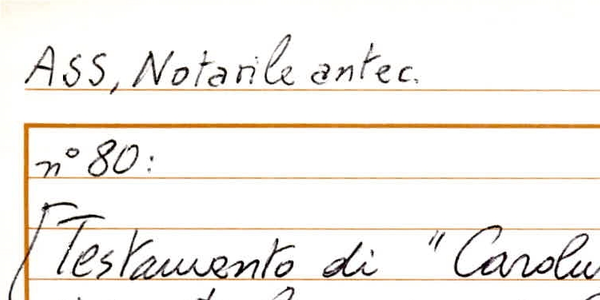 ASS, Notarile antec.
n° 80:
[Testamento di "Carolu